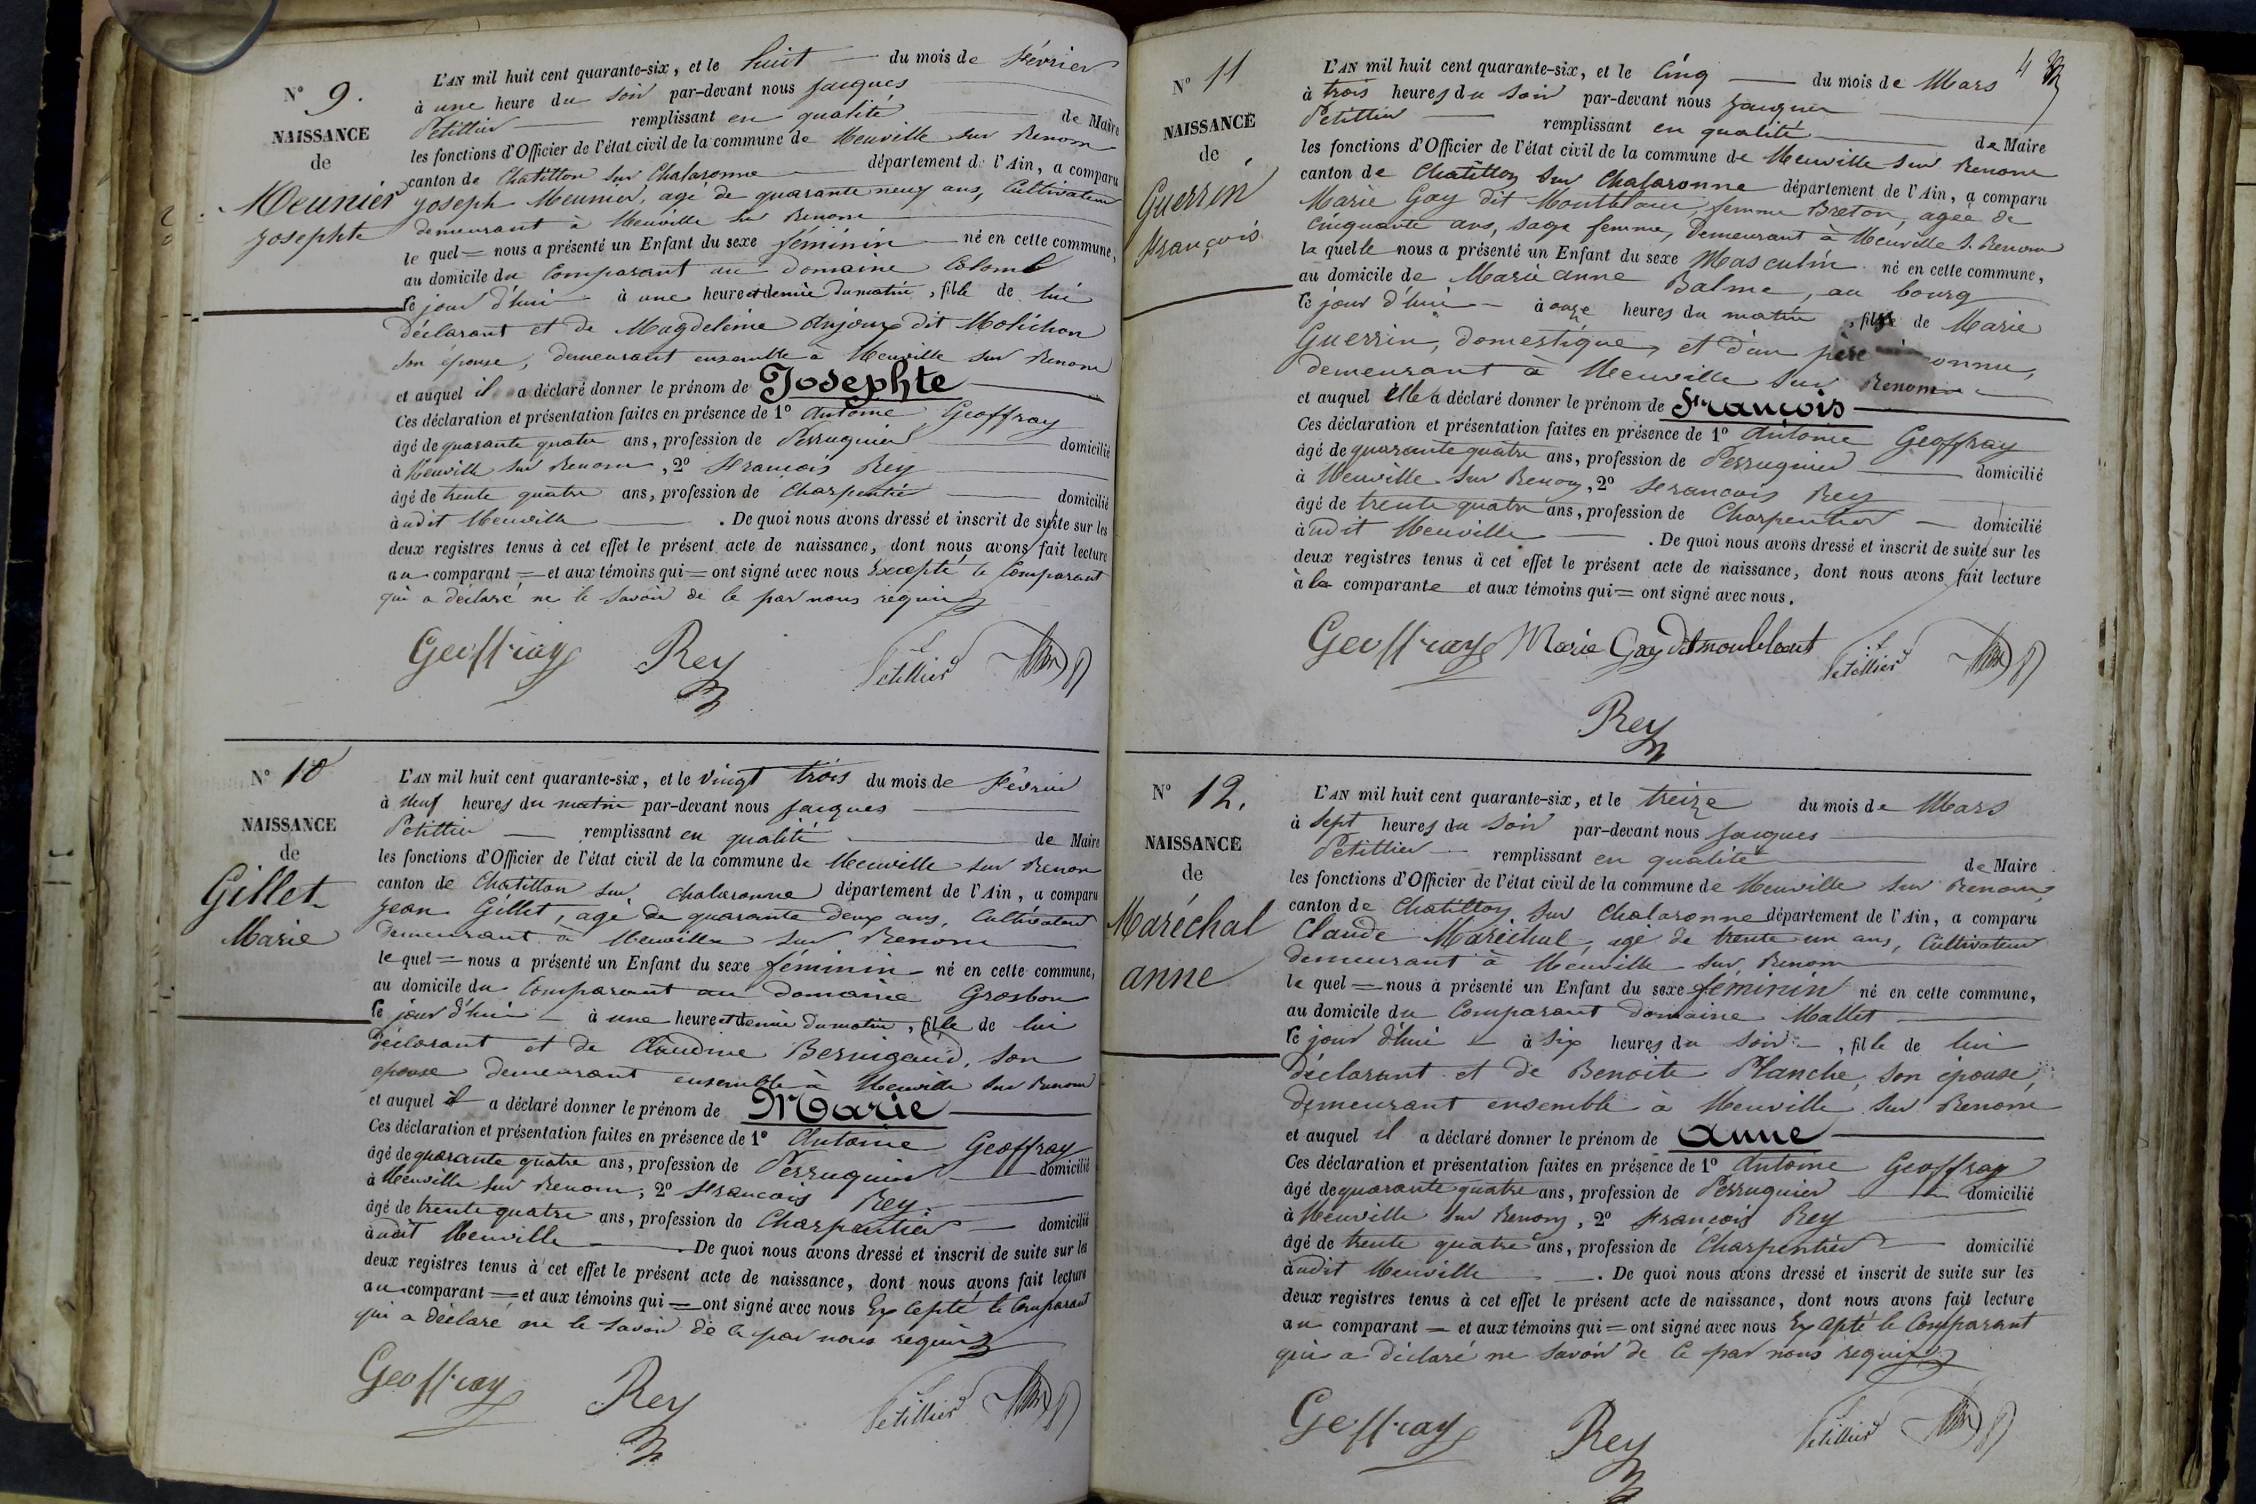 N° 9.
NAISSANCE
de
Meunier
Josephte
L'AN mil huit cent quarante-six, et le huit du mois de février
à une heure du soir par-devant nous Jacques
Petittier remplissant en qualité de Maire
les fonctions d'Officier de l'état civil de la commune de Neuville sur Renom
canton de Chatillon sur Chalaronne département de l'Ain, a comparu
Joseph Meunier, agé de quarante neuf ans, Cultivateur
demeurant à Neuville sur Renom
le quel = nous a présenté un Enfant du sexe féminin né en cette commune,
au domicile du Comparant au domaine Colomb
le jour d'hui à une heure et demie du matin, fille de lui
déclarant et de Magdeleine Anjoux dit Molichon
son épouse, demeurant ensemble à Neuville sur Renom
et auquel il a déclaré donner le prénom de Josephte
Ces déclaration et présentation faites en présence de 1° Antoine Geoffray
âgé de quarante quatre ans, profession de Perruquier domicilié
à Neuville sur Renom, 2° francois Rey
âgé de trente quatre ans, profession de Charpentier domicilié
à udit Neuville . De quoi nous avons dressé et inscrit de suite sur les
deux registres tenus à cet effet le présent acte de naissance, dont nous avons fait lecture
au comparant = et aux témoins qui = ont signé avec nous Excepté le Comparant
qui a déclaré ne le savoir de ce par nous requis
Geoffray Rey Petillier
N° 10
NAISSANCE
de
Gillet
Marie
L'AN mil huit cent quarante-six, et le vingt trois du mois de février
à neuf heures du matin par-devant nous Jacques
Petittier remplissant en qualité de Maire
les fonctions d'Officier de l'état civil de la commune de Neuville sur Renom
canton de Chatillon sur Chalaronne département de l'Ain, a comparu
Jean Gillet, agé de quarante deux ans, Cultivateur
demeurant à Neuville sur Renom
le quel = nous a présenté un Enfant du sexe féminin né en cette commune,
au domicile du Comparant au domaine Grosbon
le jour d'hui à une heure et demie du matin, fille de lui
déclarant et de Claudine Bernigaud, son
épouse demeurant ensemble à Neuville sur Renom
et auquel il a déclaré donner le prénom de Marie
Ces déclaration et présentation faites en présence de 1° Antoine Geoffray
âgé de quarante quatre ans, profession de Perruquier domicilié
à Neuville sur Renom, 2° francois Rey
âgé de trente quatre ans, profession de Charpentier domicilié
à udit Neuville . De quoi nous avons dressé et inscrit de suite sur les
deux registres tenus à cet effet le présent acte de naissance, dont nous avons fait lecture
au comparant = et aux témoins qui = ont signé avec nous Excepté le Comparant
qui a déclaré ne le savoir de ce par nous requis
Geoffray Rey Petillier
4
N° 11
NAISSANCE
de
Guerrin
françois
L'AN mil huit cent quarante-six, et le Cinq du mois de Mars
à trois heures du soir par-devant nous Jacques
Petittier remplissant en qualité de Maire
les fonctions d'Officier de l'état civil de la commune de Neuville sur Renom
canton de Chatillon sur Chalaronne département de l'Ain, a comparu
Marie Gay dit Montblanc, femme Breton, agée de
cinquante ans, sage femme, demeurant à Neuville S. Renom
la quelle nous a présenté un Enfant du sexe Masculin né en cette commune,
au domicile de Marie anne Balme, au bourg
le jour d'hui à onze heures du matin, fils de Marie
Guerrin, domestique, et d'un père inconnu,
demeurant à Neuville sur Renom
et auquel elle a déclaré donner le prénom de François
Ces déclaration et présentation faites en présence de 1° Antoine Geoffray
âgé de quarante quatre ans, profession de Perruquier domicilié
à Neuville sur Renom, 2° francois Rey
âgé de trente quatre ans, profession de Charpentier domicilié
à udit Neuville . De quoi nous avons dressé et inscrit de suite sur les
deux registres tenus à cet effet le présent acte de naissance, dont nous avons fait lecture
à la comparante et aux témoins qui = ont signé avec nous.
Geoffray Marie Gay dit Petillier
Rey
N° 12.
NAISSANCE
de
Maréchal
anne
L'AN mil huit cent quarante-six, et le treize du mois de Mars
à sept heures du soir par-devant nous Jacques
Petittier remplissant en qualité de Maire
les fonctions d'Officier de l'état civil de la commune de Neuville sur Renom,
canton de Chatillon sur Chalaronne département de l'Ain, a comparu
Claude Maréchal, agé de trente un ans, Cultivateur
demeurant à Neuville sur Renom
le quel = nous a présenté un Enfant du sexe féminin né en cette commune,
au domicile du Comparant domaine Mallet
le jour d'hui à six heures du soir, fille de lui
déclarant et de Benoite Planche, son épouse,
demeurant ensemble à Neuville sur Renom
et auquel il a déclaré donner le prénom de anne
Ces déclaration et présentation faites en présence de 1° Antoine Geoffray
âgé de quarante quatre ans, profession de Perruquier domicilié
à Neuville sur Renom, 2° françois Rey
âgé de trente quatre ans, profession de Charpentier domicilié
à udit Neuville . De quoi nous avons dressé et inscrit de suite sur les
deux registres tenus à cet effet le présent acte de naissance, dont nous avons fait lecture
au comparant = et aux témoins qui = ont signé avec nous Excepté le Comparant
qui a déclaré ne savoir de ce par nous requis
Geoffray Rey Petillier